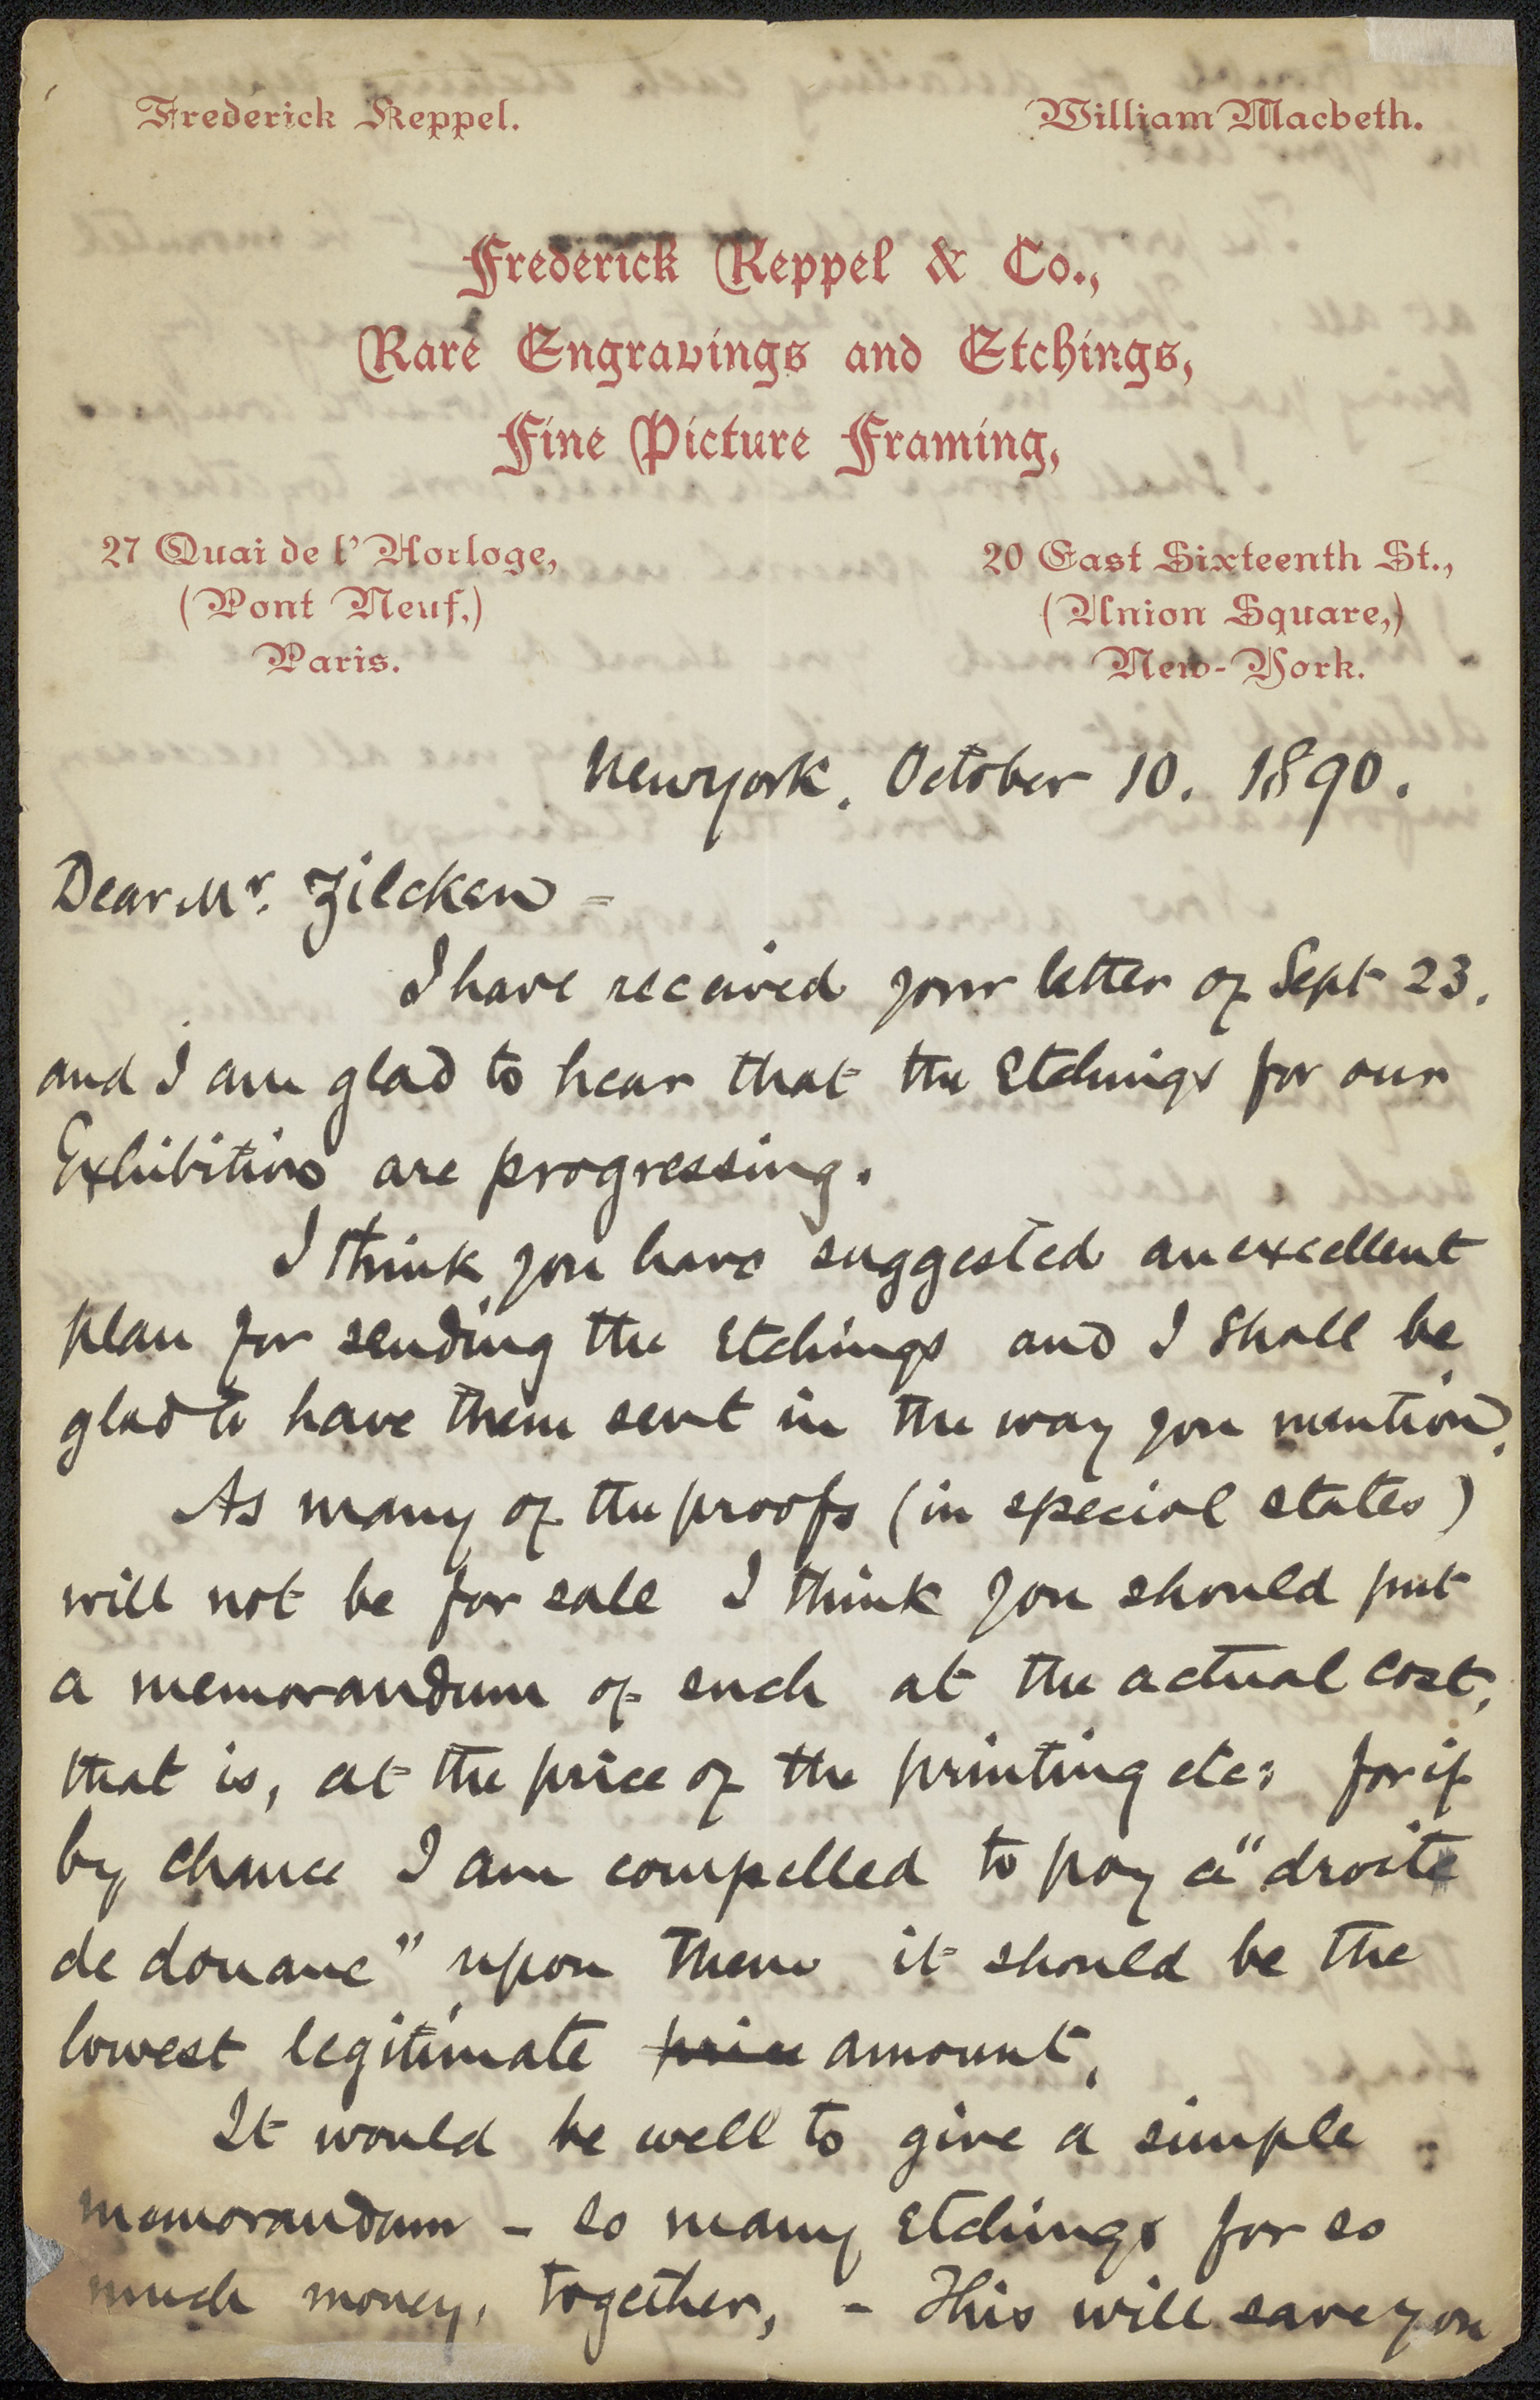 Frederick Keppel. William Macbeth.
Frederick Keppel & Co.,
Rare Engravings and Etchings,
Fine Picture Framing,
27 Quai de l'Horloge, 20 East Sixteenth St.,
(Pont Neuf,) (Union Square,)
Paris. New-York.
New York. October 10. 1890.
Dear Mr. Zilcken -
I have received your letter of Sept 23.
and I am glad to hear that the Etchings for our
Exhibition are progressing.
I think you have suggested an excellent
plan for sending the Etchings and I shall be
glad to have them sent in the way you mention.
As many of the proofs (in special states)
will not be for sale I think you should put
a memorandum of such at the actual cost,
that is, at the price of the printing etc: for if
by chance I am compelled to pay a "droite
de douane" upon them it should be the
lowest legitimate price amount.
It would be well to give a simple
memorandum - so many Etchings for so
much money, together, - This will save you